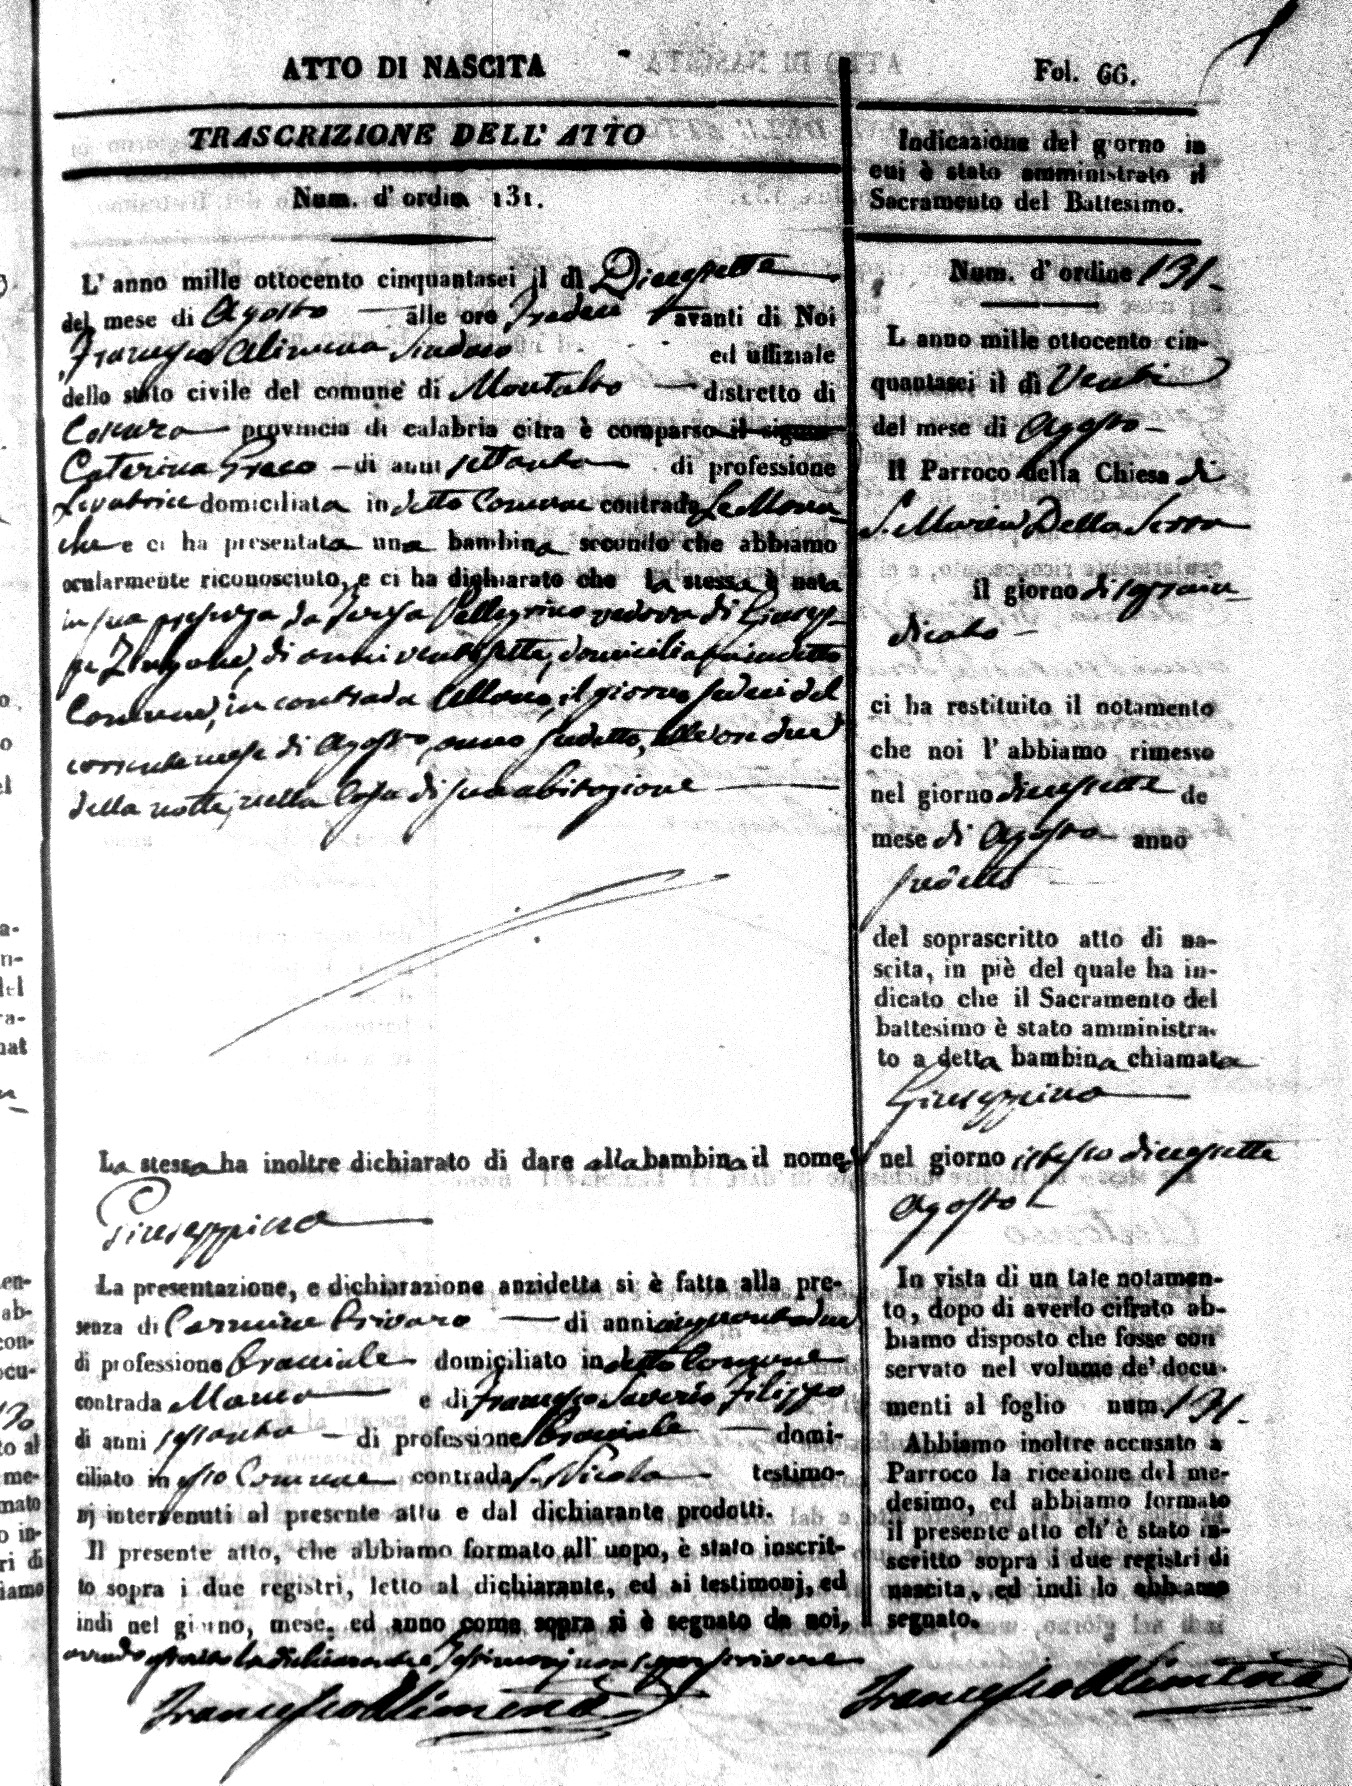 ATTO DI NASCITA
TRASCRIZIONE DELL' ATTO
Num. d' ordin 131.
L' anno mille ottocento cinquantasei il dì Diecisette
del mese di Agosto alle ore Tredeci avanti di Noi
Francesco Alimena Sindaco ed uffiziale
dello stato civile del comune di Montalto distretto di
Cosenza provincia di calabria citra è comparso il signor
Caterina Greco di anni settanta di professione
Levatrice domiciliata in detto Comune contrada Le Mona-
che e ci ha presentata una bambina secondo che abbiamo
ocularmente riconosciuto, e ci ha dichiarato che la stessa è nata
in sua presenza da Teresa Pellegrino vedova di Giusep-
pe di anni ventisette, domiciliata in detto
Comune, in contrada il giorno sedeci del
corrente mese di Agosto, anno sudetto, alle ore due
della notte, nella Casa di sua abitazione
La stessa ha inoltre dichiarato di dare alla bambina il nome
Giuseppina
La presentazione, e dichiarazione anzidetta si è fatta alla pre-
senza di Carmine di anni cinquantadue
di professione Bracciale domiciliato in detto Comune
contrada e di Francesco Saverio Filippo
di anni sessanta di professione Bracciale domi-
ciliato in esso Comune contrada S. Nicola testimo-
nj intervenuti al presente atto e dal dichiarante prodotti.
Il presente atto, che abbiamo formato all' uopo, è stato inscrit-
to sopra i due registri, letto al dichiarante, ed ai testimonj, ed
indi nel giorno, mese, ed anno come sopra si è segnato da noi,
avendo la dichiarante e testimonj non saper scrivere
Francesco Alimena
Fol. 66.
Indicazione del giorno in
cui è stato amministrato il
Sacramento del Battesimo.
Num. d' ordine 131.
L anno mille ottocento cin-
quantasei il dì Venti
del mese di Agosto
Il Parroco della Chiesa di
S. Maria Della Serra
il giorno di sopra in-
dicato
ci ha restituito il notamento
che noi l' abbiamo rimesso
nel giorno diecisette de
mese di Agosto anno
sudetto
del soprascritto atto di na-
scita, in piè del quale ha in-
dicato che il Sacramento del
battesimo è stato amministra-
to a detta bambina chiamata
Giuseppina
nel giorno istesso diecisette
Agosto
In vista di un tale notamen-
to, dopo di averlo cifrato ab-
biamo disposto che fosse con
servato nel volume de' docu-
menti al foglio num. 131.
Abbiamo inoltre accusato a
Parroco la ricezione del me-
desimo, ed abbiamo formato
il presente atto ch' è stato in-
scritto sopra i due registri di
nascita, ed indi lo abbiamo
segnato.
Francesco Alimena